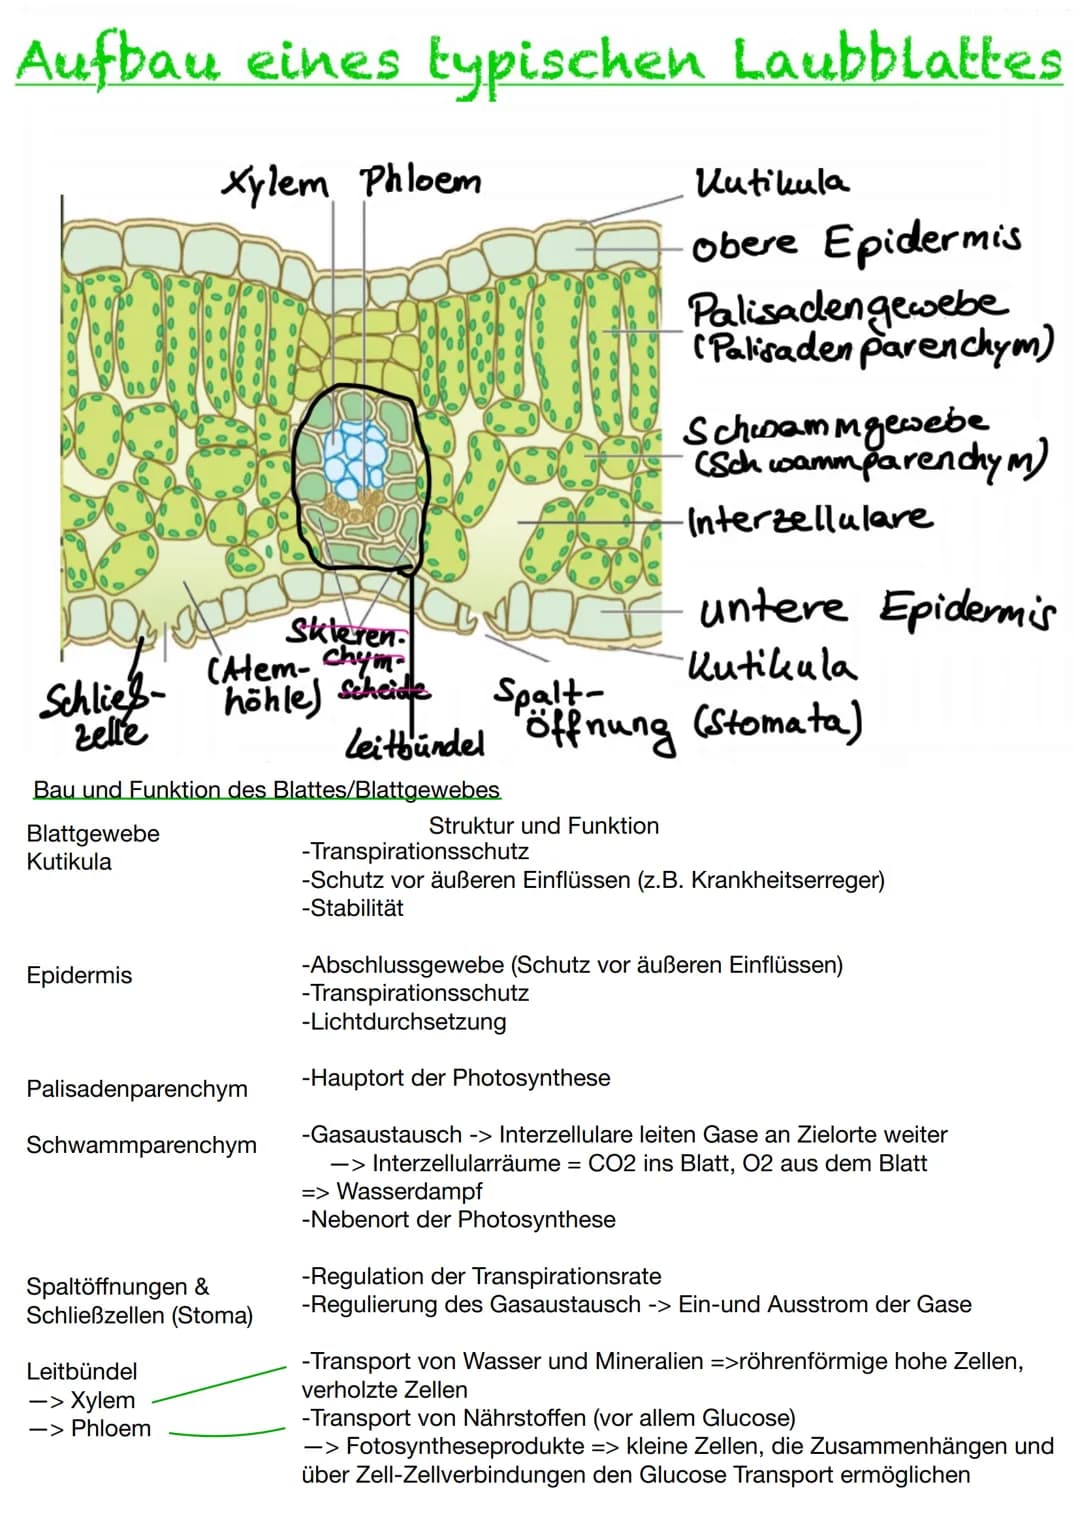 Aufbau eines typischen Laubblattes
Xylem Phloem
Kutikula
obere Epidermis
Palisadengewebe
(Palisadenparenchym)
Schwammgewebe
(Schwammparenchym)
Interzellulare
untere Epidermis
Kutikula
Skleren-
chym-
scheide
(Atem-
höhle)
Schließ-
zelle
Spalt-
öffnung (Stomata)
Leitbündel
Bau und Funktion des Blattes/Blattgewebes
Blattgewebe
Struktur und Funktion
Kutikula
-Transpirationsschutz
-Schutz vor äußeren Einflüssen (z.B. Krankheitserreger)
-Stabilität
Epidermis
-Abschlussgewebe (Schutz vor äußeren Einflüssen)
-Transpirationsschutz
-Lichtdurchsetzung
Palisadenparenchym
-Hauptort der Photosynthese
Schwammparenchym
-Gasaustausch -> Interzellulare leiten Gase an Zielorte weiter
—> Interzellularräume = CO2 ins Blatt, O2 aus dem Blatt
=> Wasserdampf
-Nebenort der Photosynthese
Spaltöffnungen &
Schließzellen (Stoma)
-Regulation der Transpirationsrate
-Regulierung des Gasaustausch -> Ein-und Ausstrom der Gase
Leitbündel
—> Xylem
—> Phloem
-Transport von Wasser und Mineralien =>röhrenförmige hohe Zellen,
verholzte Zellen
-Transport von Nährstoffen (vor allem Glucose)
—> Fotosyntheseprodukte => kleine Zellen, die Zusammenhängen und
über Zell-Zellverbindungen den Glucose Transport ermöglichen